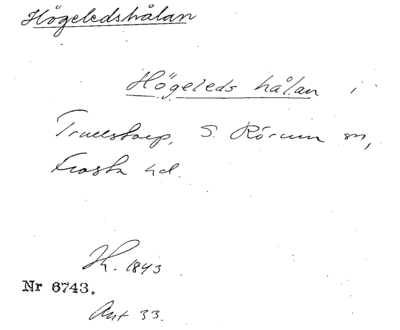 Högeledshålan
Högeleds hålan i
Truelstorp, S. Rörum sn,
Frosta hd.
1843
Nr 6743.
Ant 33.